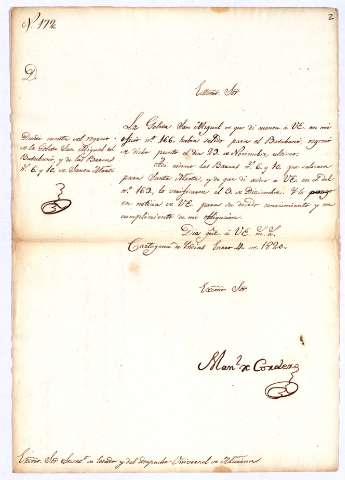 N. 172
2
D.
Exmo. Sor.
Dando cuenta del regreso
de la Goleta San Miguel del
Batabanó, y de las Barcas
nos. 6 y 10 de Santa Marta
La Goleta San Miguel de que di cuenta á V.E. en mi
oficio no. 166, haber salido para el Batabanó, regresó
de dicho puerto el dia 23 de Noviembre ultimo.
Las Barcas nos. 6 y 10 que salieron
para Santa Marta, y de que di aviso á V.E. en el del
no. 163, lo verificaron el 3 de Diciembre. Y lo pongo
en noticia de V.E. para su debido conocimiento y en
cumplimiento de mi obligacion.
Dios gue. á V.E. m. a.
Cartagena de Indias Enero 4 de 1820.
Exmo. Sor.
Manl. de Cordero
Exmo. Sor. Secreto. de Estado y del Despacho Universal de Marina